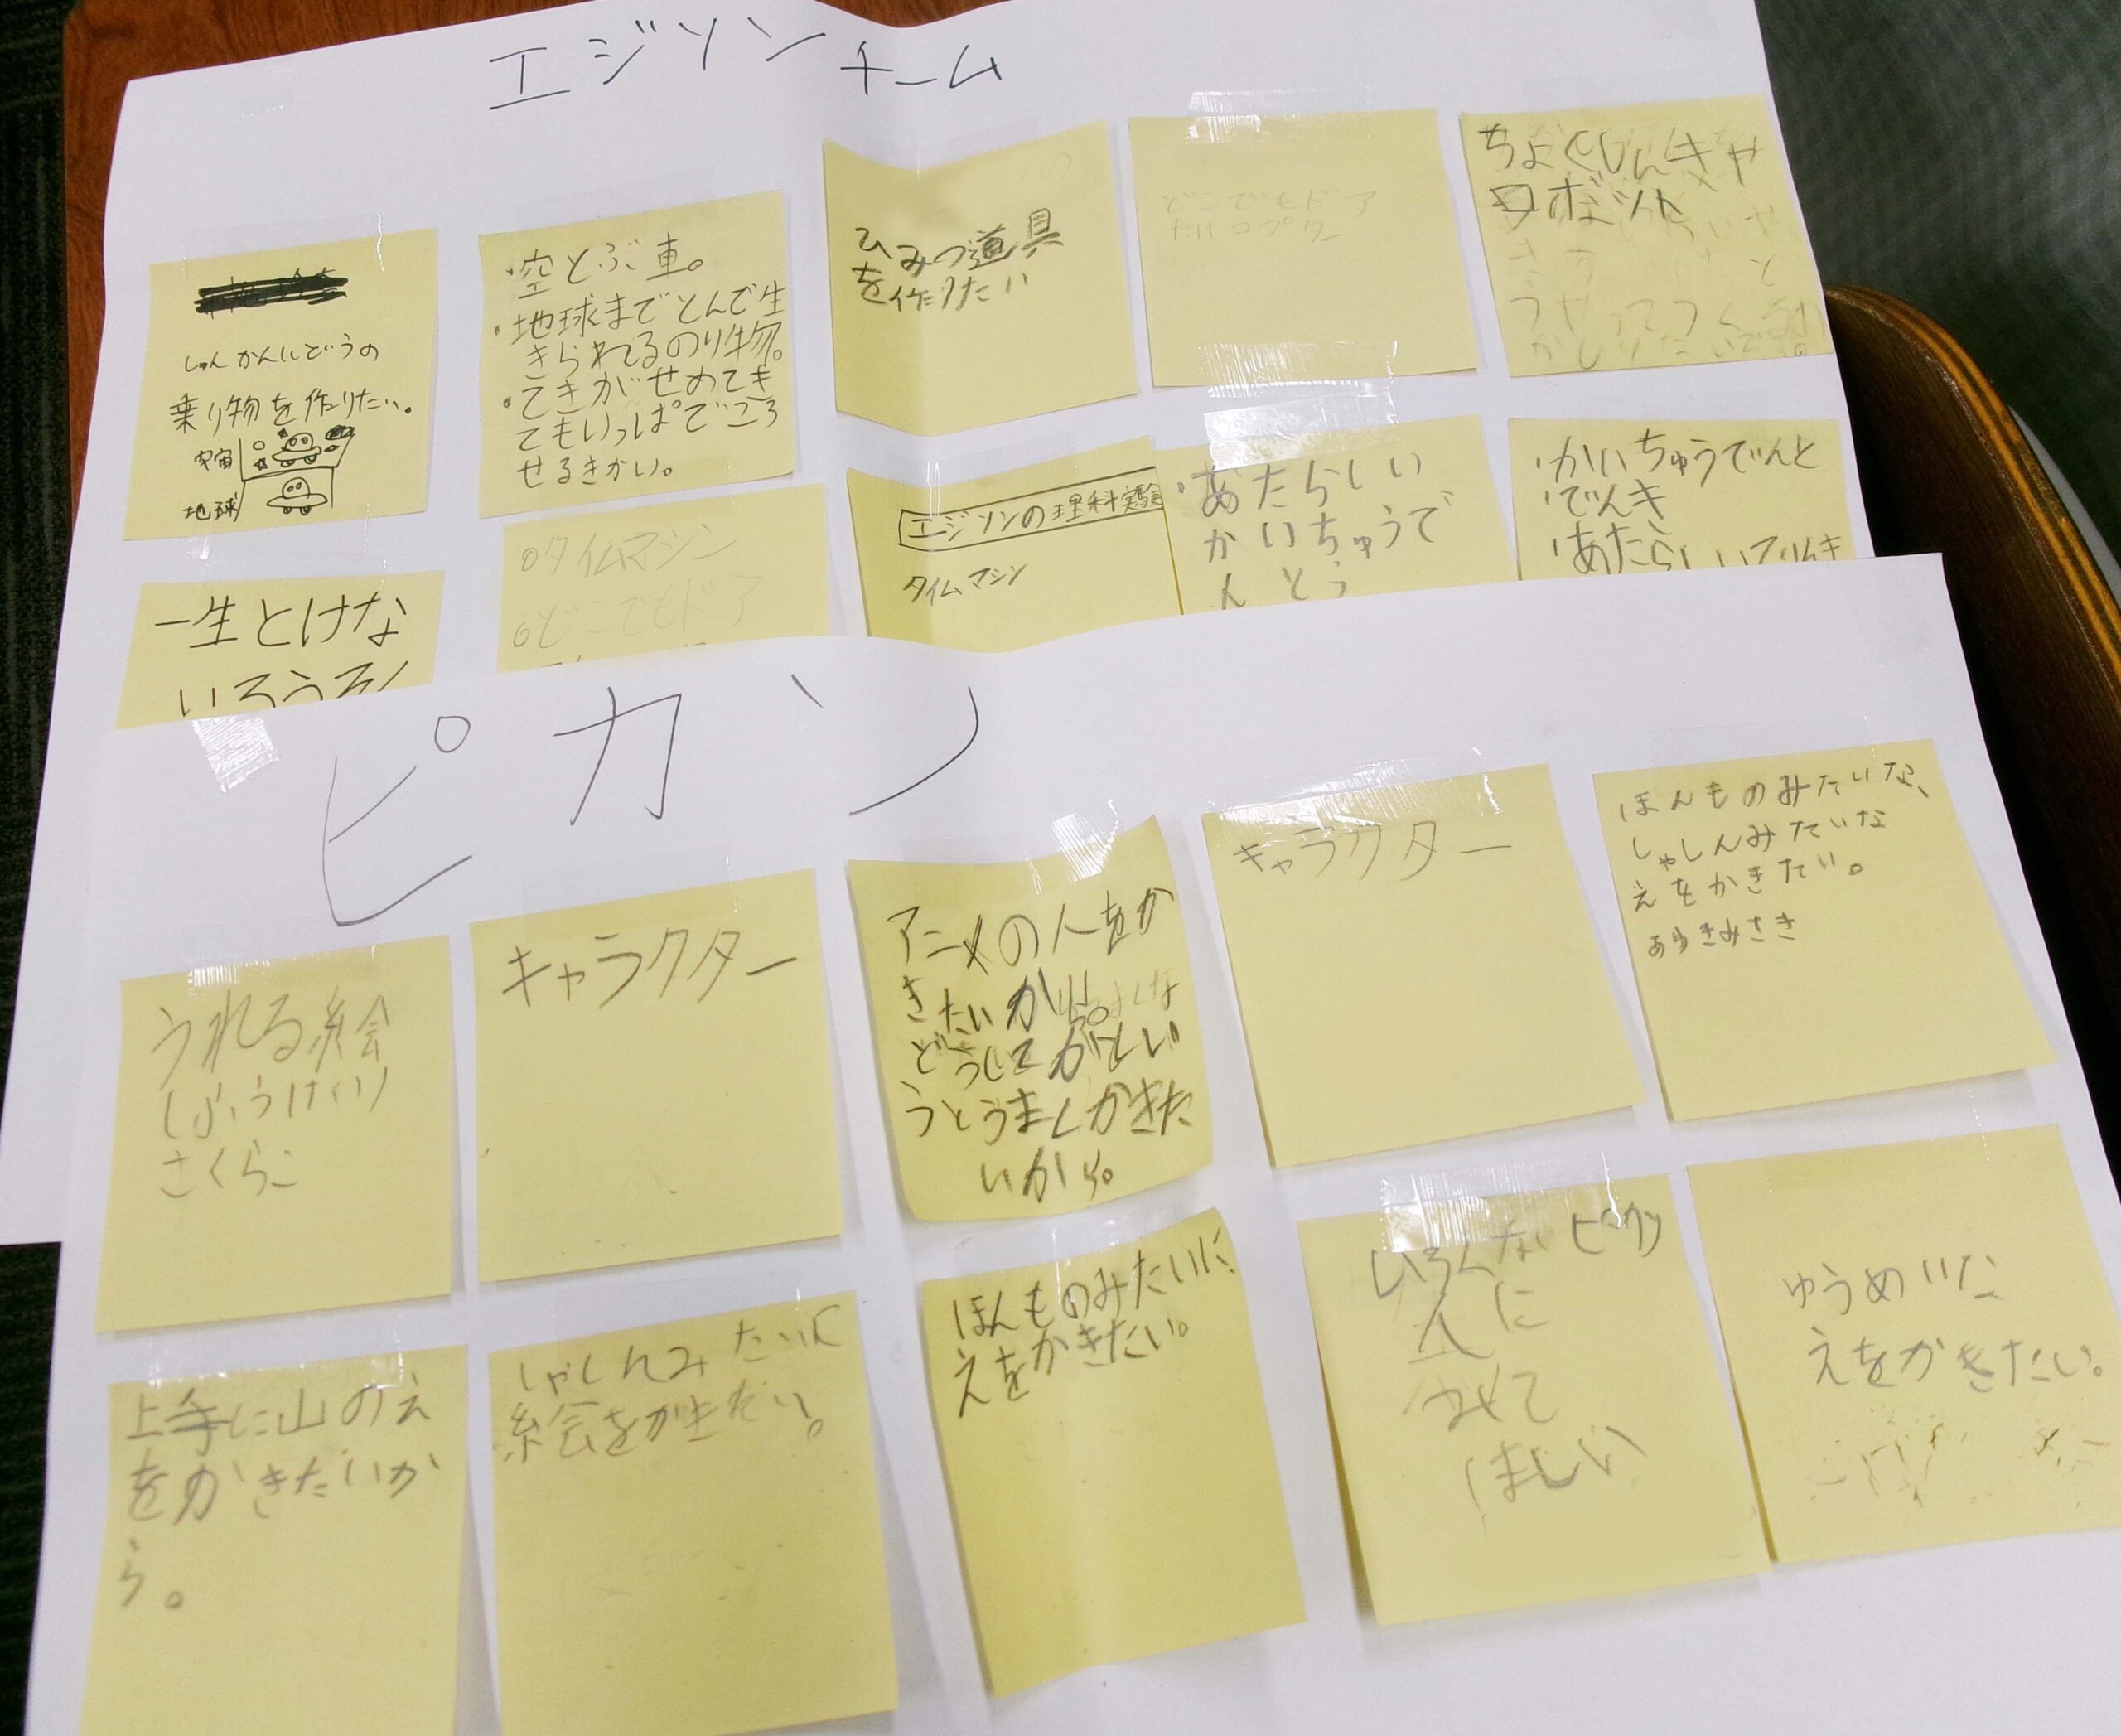 エジソンチーム
しゅんかんいどうの
乗り物を作りたい。
宇宙
地球
・空とぶ車。
・地球までとんで生
きられるのり物。
・てきがせめてき
てもいっぱでころ
せるきかい。
ひみつ道具
を作りたい
どこでもドア
たけコプター
ちょくしんきゃ
ロボット
一生とけな
いろうそく
○タイムマシン
○どこでもドア
エジソンの理科実験
タイムマシン
・あたらしい
かいちゅうで
んとう
・かいちゅうでんと
・でんき
・あたらしいでんき
ピカソ
うれる絵
(ふうけい)
さくらこ
キャラクター
アニメの人をか
きたいから。
どうしてかとい
うとうまくかきた
いから。
キャラクター
ほんものみたいな、
しゃしんみたいな
えをかきたい。
あゆきみさき
上手に山のえ
をかきたいか
ら。
しゃしんみたいに
絵をかきたい。
ほんものみたいに
えをかきたい。
いろんな
人に
みて
ほしい
ゆうめいな
えをかきたい。